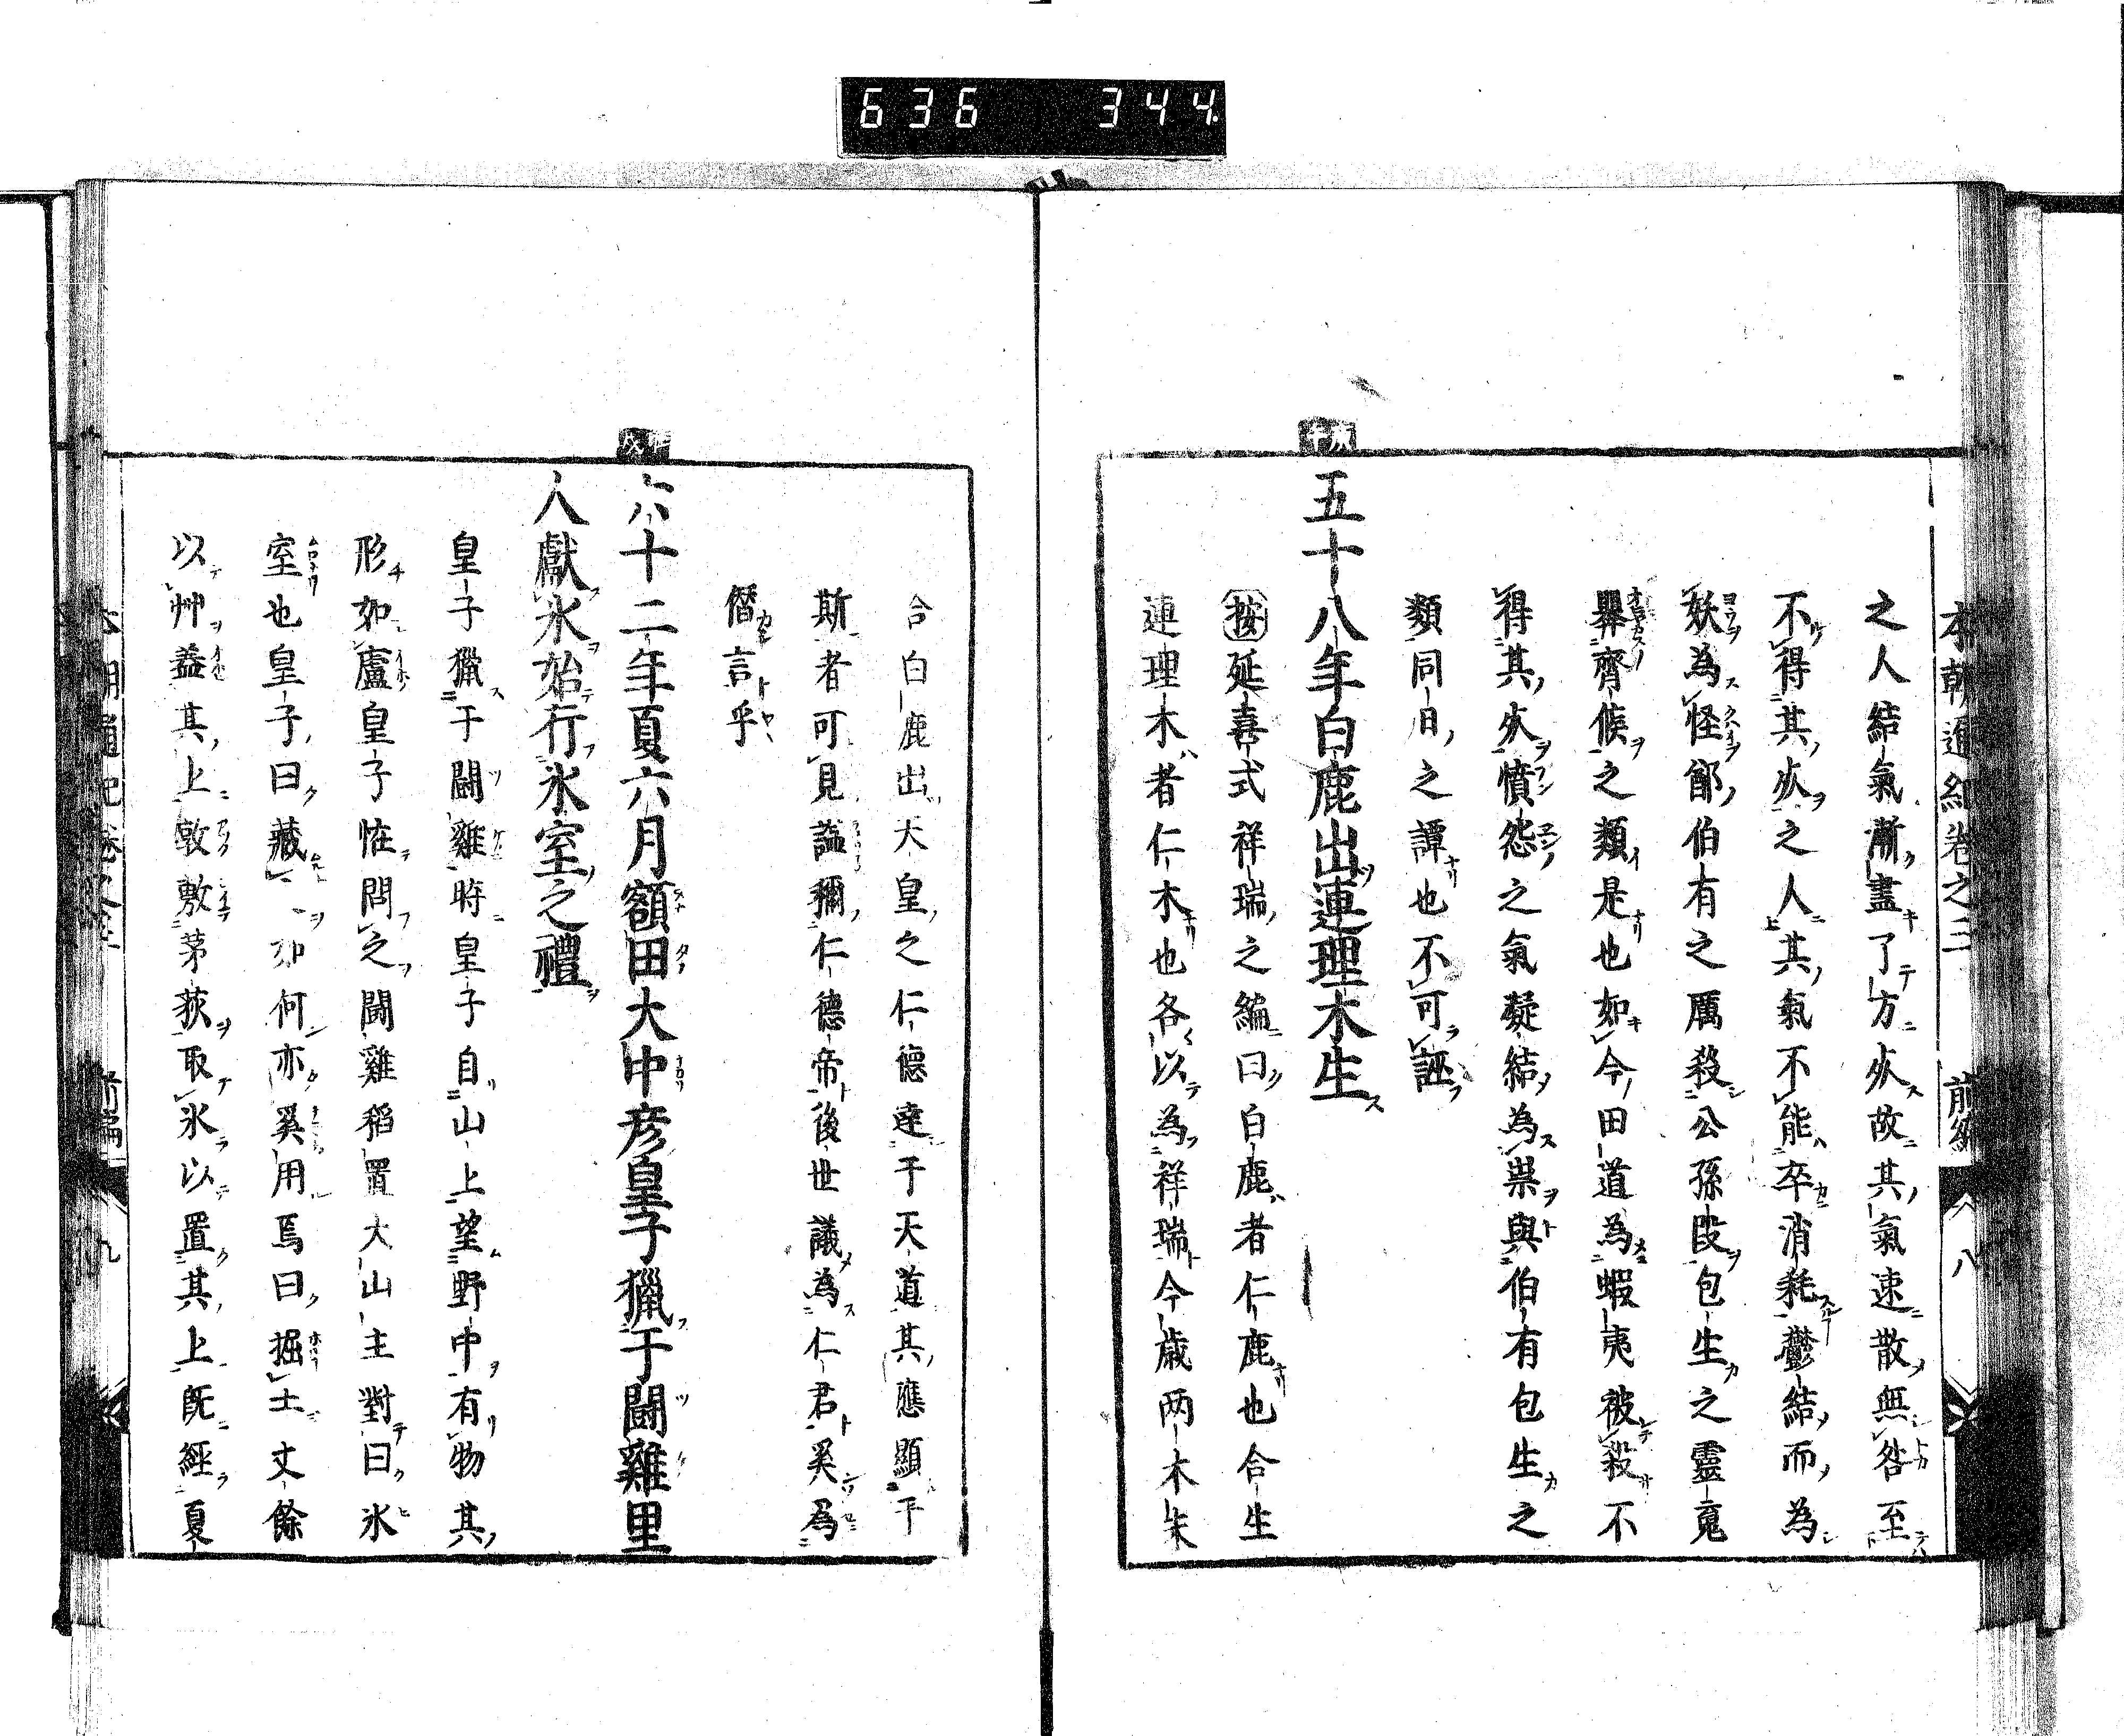 636 344
本朝通紀卷之三 前編 八
之人結氣漸盡了方死故其氣速散無咎至
不得其死之人其氣不能卒消耗鬱結而為
妖為怪鄭伯有之厲殺公孫段包生之靈寃
齊候之類是也如今田道為蝦夷被殺不
得其死憤怨之氣凝結為祟與伯有包生之
類同日之譚也不可誣
五十八年白鹿出連理木生
按延喜式祥瑞之編曰白鹿者仁鹿也合生
連理木者仁木也各以為祥瑞今歳两木朱
合白鹿出大皇之仁德達于天道其應顯于
斯者可見謚彌仁德帝後世議為仁君奚為
僭言乎
六十二年夏六月額田大中彦皇子獵于闘雞里
人獻氷始行氷室之禮
皇子獵于闘雞時皇子自山上望野中有物其
形如廬皇子恠問之闘雞稻置大山主對曰氷
室也皇子曰藏如何亦奚用焉曰掘土丈餘
以艸葢其上敦敷茅荻取氷以置其上既經夏
前編 九